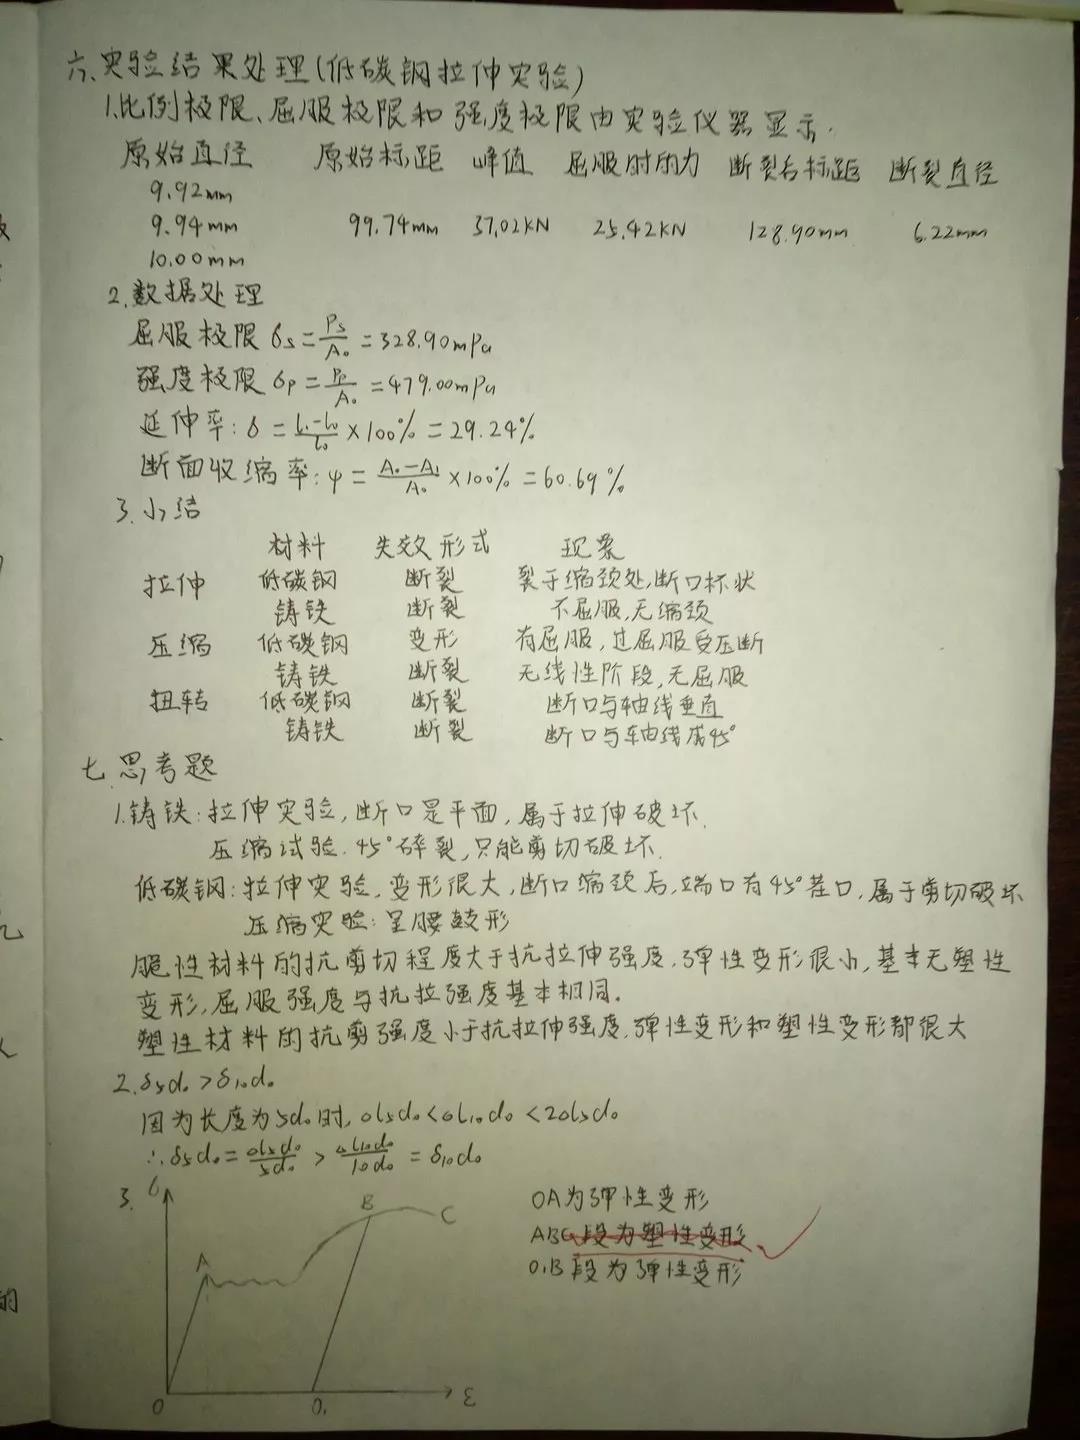 六、实验结果处理(低碳钢拉伸实验)
1.比例极限、屈服极限和强度极限由实验仪器显示.
原始直径 原始标距 峰值 屈服时的力 断裂后标距 断裂直径
9.92mm
9.94mm 99.74mm 37.02KN 25.42KN 128.90mm 6.22mm
10.00mm
2.数据处理
屈服极限 σs=Ps/A₀=328.90mPa
强度极限 σp=Pp/A₀=479.00mPa
延伸率:δ=(l₁-l₀)/l₀×100%=29.24%
断面收缩率:ψ=(A₀-A₁)/A₀×100%=60.69%
3.小结
材料 失效形式 现象
拉伸 低碳钢 断裂 裂于缩颈处,断口杯状
铸铁 断裂 不屈服,无缩颈
压缩 低碳钢 变形 有屈服,过屈服受压断
铸铁 断裂 无线性阶段,无屈服
扭转 低碳钢 断裂 断口与轴线垂直
铸铁 断裂 断口与轴线成45°
七.思考题
1.铸铁:拉伸实验,断口是平面,属于拉伸破坏.
压缩试验.45°碎裂,只能剪切破坏.
低碳钢:拉伸实验,变形很大,断口缩颈后,端口有45°茬口,属于剪切破坏
压缩实验:呈腰鼓形
脆性材料的抗剪切程度大于抗拉伸强度,弹性变形很小,基本无塑性
变形,屈服强度与抗拉强度基本相同.
塑性材料的抗剪强度小于抗拉伸强度,弹性变形和塑性变形都很大
2.δ₅d₀>δ₁₀d₀
因为长度为5d₀时,σl₅d₀<σl₁₀d₀<2σl₅d₀
∴δ₅d₀=σl₅d₀/5d₀>σl₁₀d₀/10d₀=δ₁₀d₀
3.
σ
A
B
C
O
O₁
ε
OA为弹性变形
ABC段为塑性变形
O₁B段为弹性变形